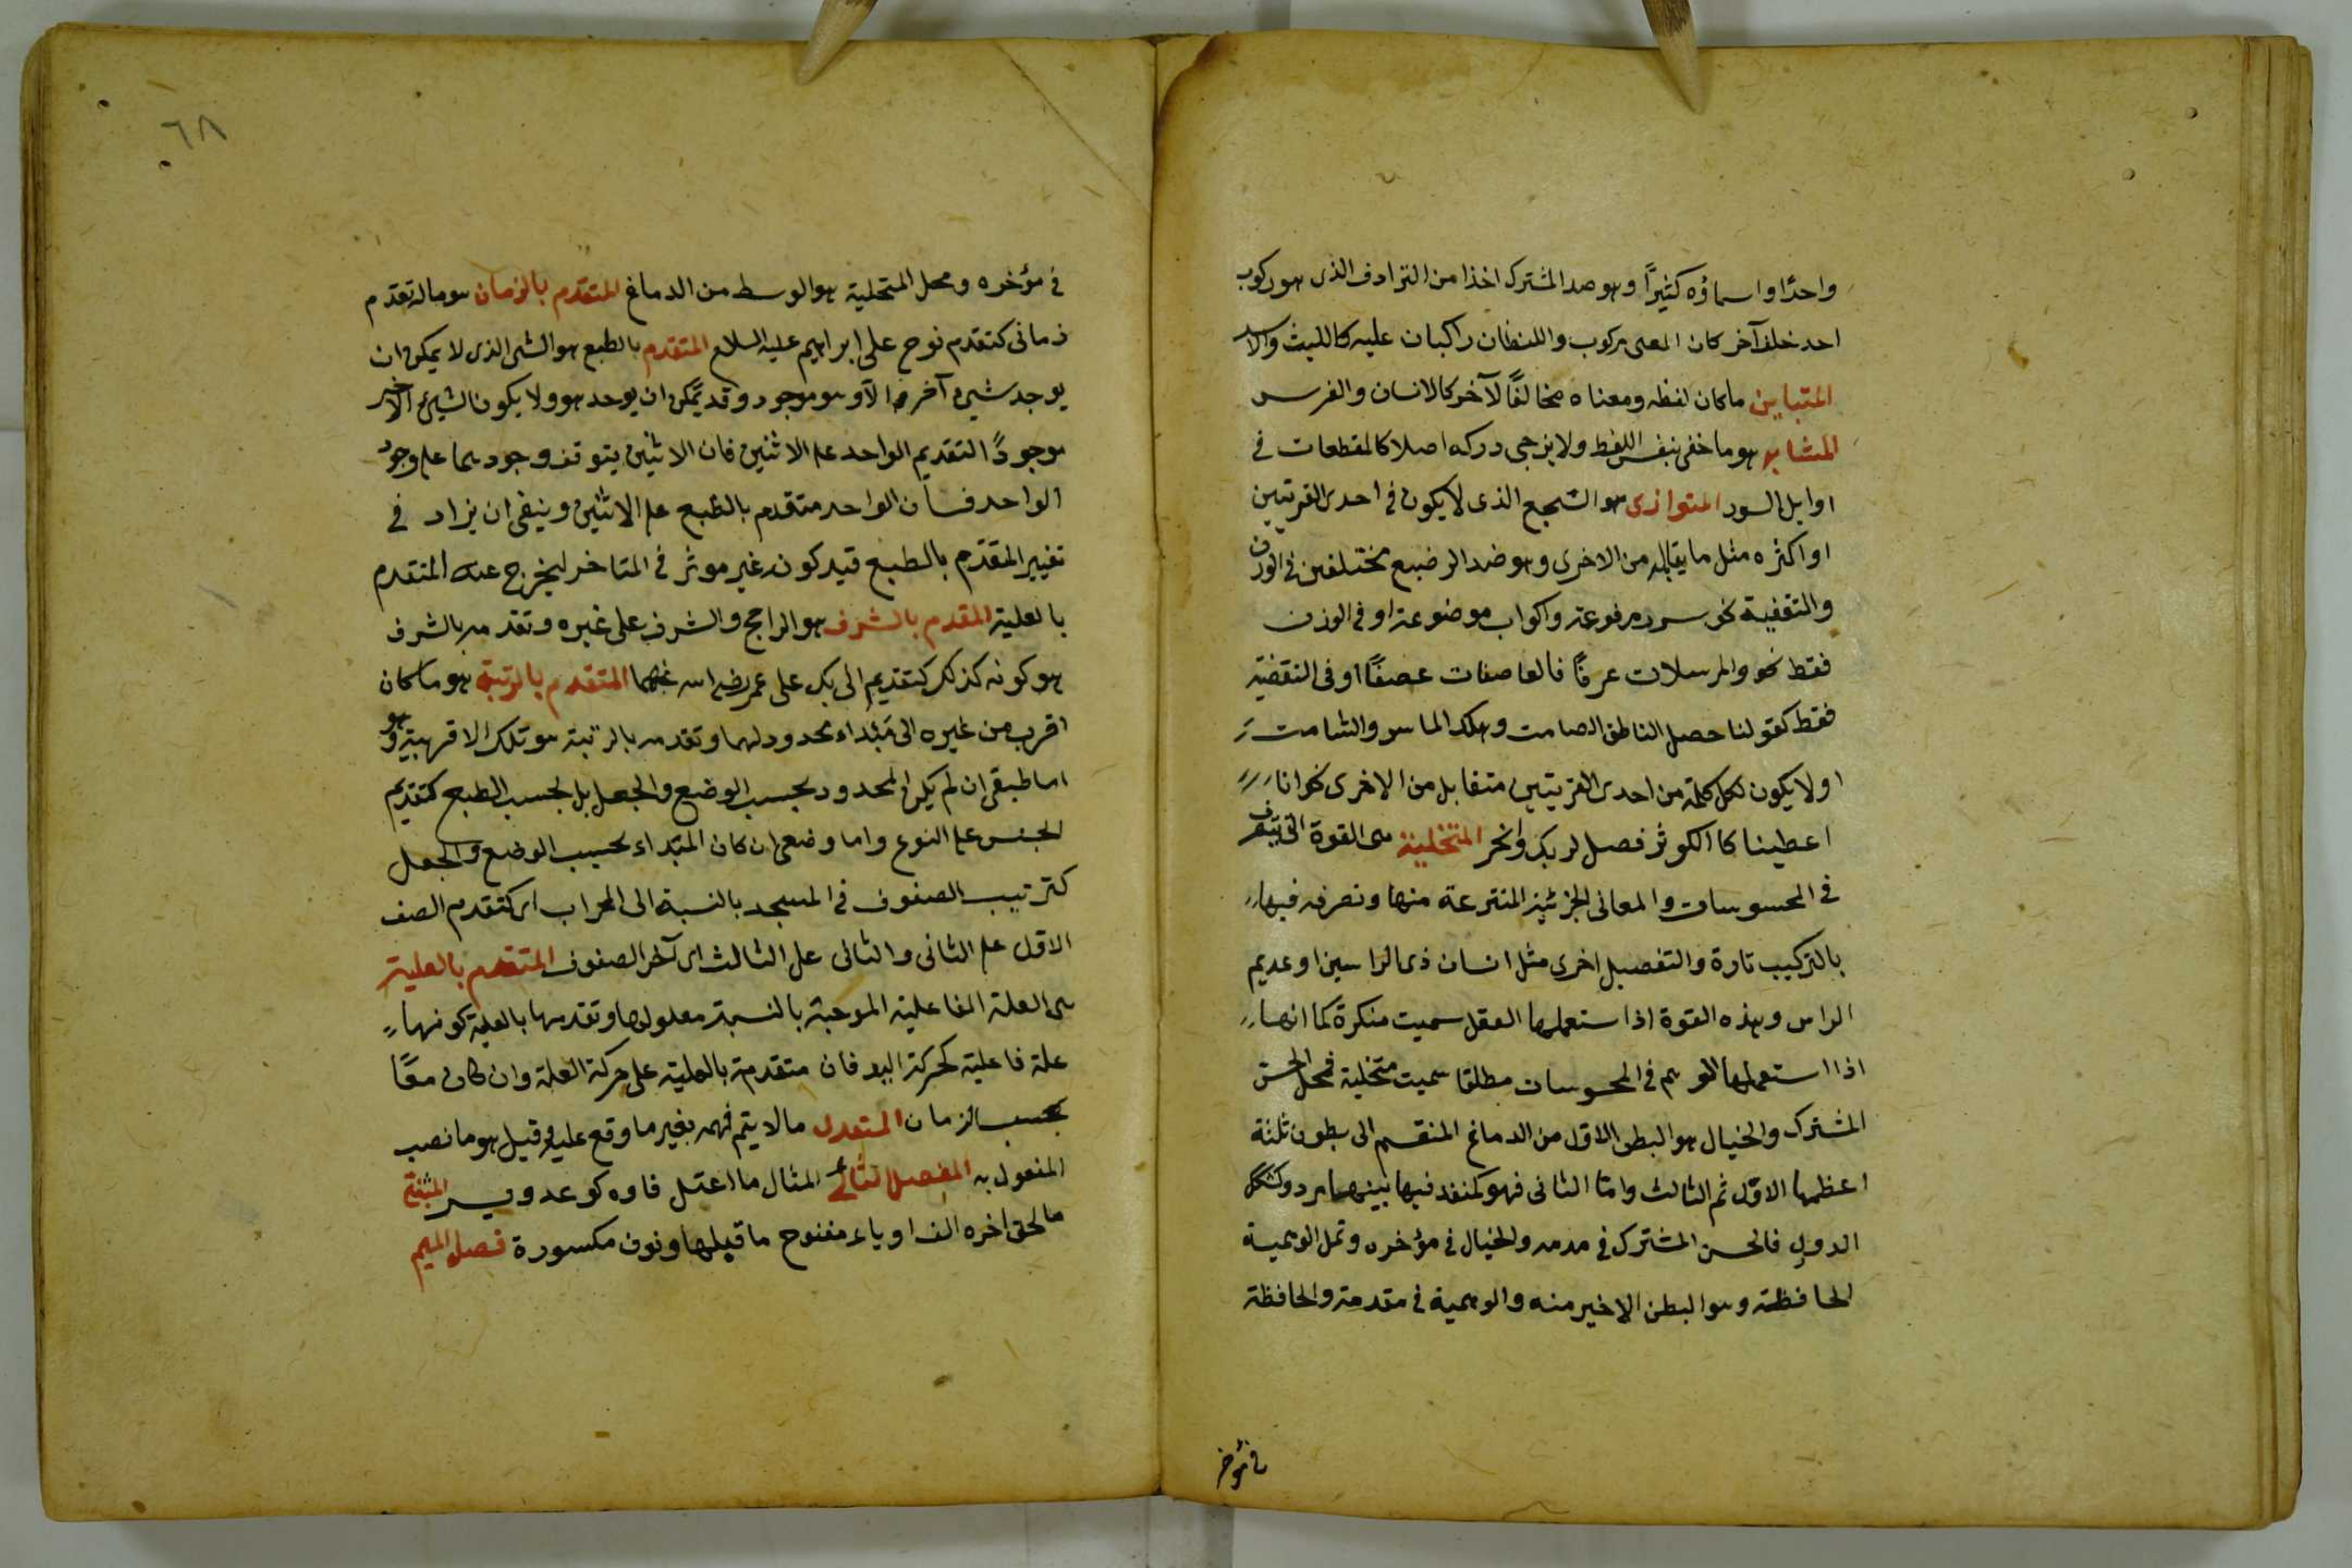 واحدًا واسماؤه كثيرًا وهو ضد المشترك اخذا من الترادف الذى هو ركوب
احد خلف آخر كان المعنى مركوب واللفظان راكبان عليه كالليث والاسد
المتباين ما كان لفظه ومعناه مخالفًا لآخر كالانسان والفرس
المتشابه هو ما خفى بنفس اللفظ ولا يرجى دركه اصلا كالمقطعات فى
اوايل السور المتوازى هو السجع الذى لا يكون فى احدى القرينتين
او اكثره مثل ما يقابله من الاخرى وهو ضد الرضيع مختلفين فى الوزن
والتقفية نحو سرر مرفوعة واكواب موضوعة او فى الوزن
فقط نحو والمرسلات عرفًا فالعاصفات عصفًا او فى التقفية
فقط كقولنا حصل الناطق الصامت وهلك الماسر والشامت
اولا يكون لكل كلمة من احدى القرينتين متقابل من الاخرى نحو انا
اعطيناكا الكوثر فصل لربك وانحر المتخلية هى القوة التى يتصرف
فى المحسوسات والمعانى الجزئية المنتزعة منها وتصرفه فيها
بالتركيب تارة والتفصيل اخرى مثل انسان ذى الراسين او عديم
الراس وهذه القوة اذا ستعملها العقل سميت منكرة كما انها
اذا استعملها الوهم فى المحسوسات مطلقا سميت متخلية فمحل الحس
المشترك والخيال هو البطن الاول من الدماغ المنقسم الى بطون ثلثة
اعظمها الاول ثم الثالث واما الثانى فهو كمنفد فيها بينهما مرد وكشكل
الدول فالحس المشترك فى مدمه والخيال فى مؤخره وتمل الوهمية
الحافظة وهو البطن الاخير منه والوهمية فى مقدمة والحافظة
فى مؤخر
٦٨
فى مؤخره ومحل المتحلية هو الوسط من الدماغ المتقدم بالزمان هو ماله تقدم
زمانى كتقدم نوح على ابراهيم عليه السلام المتقدم بالطبع هو الشئ الذى لا يمكن ان
يوجد شئ آخر الا وهو موجود وقد يمكن ان يوجد هو ولا يكون الشئ الاخير
موجودًا التقديم الواحد على الاثنين فان الاثنين يتوقف وجودهما على وجود
الواحد فسان الواحد متقدم بالطبع على الاثنين وينبقى ان يزاد فى
تغيير المقدم بالطبع قيد كونه غير موثر فى المتاخر ليخرج عنه المتقدم
بالعلية المقدم بالشرف هو الراجح والشرف على غيره وتقدمه بالشرف
هو كونه كذلك كتقديم ابى بكر على عمر رضى الله عنهما المتقدم بالرتبة هو ما كان
اقرب من غيره الى مبتداء محدود لهما وتقدمه بالرتبة هو تلك الاقربية وهو
اما طبقى ان لم يكن المحدود بحسب الوضع والجعل بل بحسب الطبع كتقديم
الجنس على النوع واما وضعى ان كان المبتداء بحسب الوضع والجعل
كترتيب الصفوف فى المسجد بالنسبة الى المحراب اى كتقدم الصف
الاول على الثانى والثانى على الثالث الى آخر الصفوف المتقدم بالعلية
هى العلة الفاعلية الموجبة بالنسبة معلولها وتقدمها بالعلية كونها
علة فاعلية كحركة اليد فان متقدمة بالعلية على حركة العلة وان كان معًا
بحسب الزمان المتعدى ما لا يتم فهمه بغير ما وقع عليه وقيل هو ما نصب
المفعول به المفصل الثاثى المثال ما اعتل فاوه كوعد ويسر المثنى
ما لحق اخره الف او ياء مفتوح ما قبلها ونون مكسورة فصل الميم